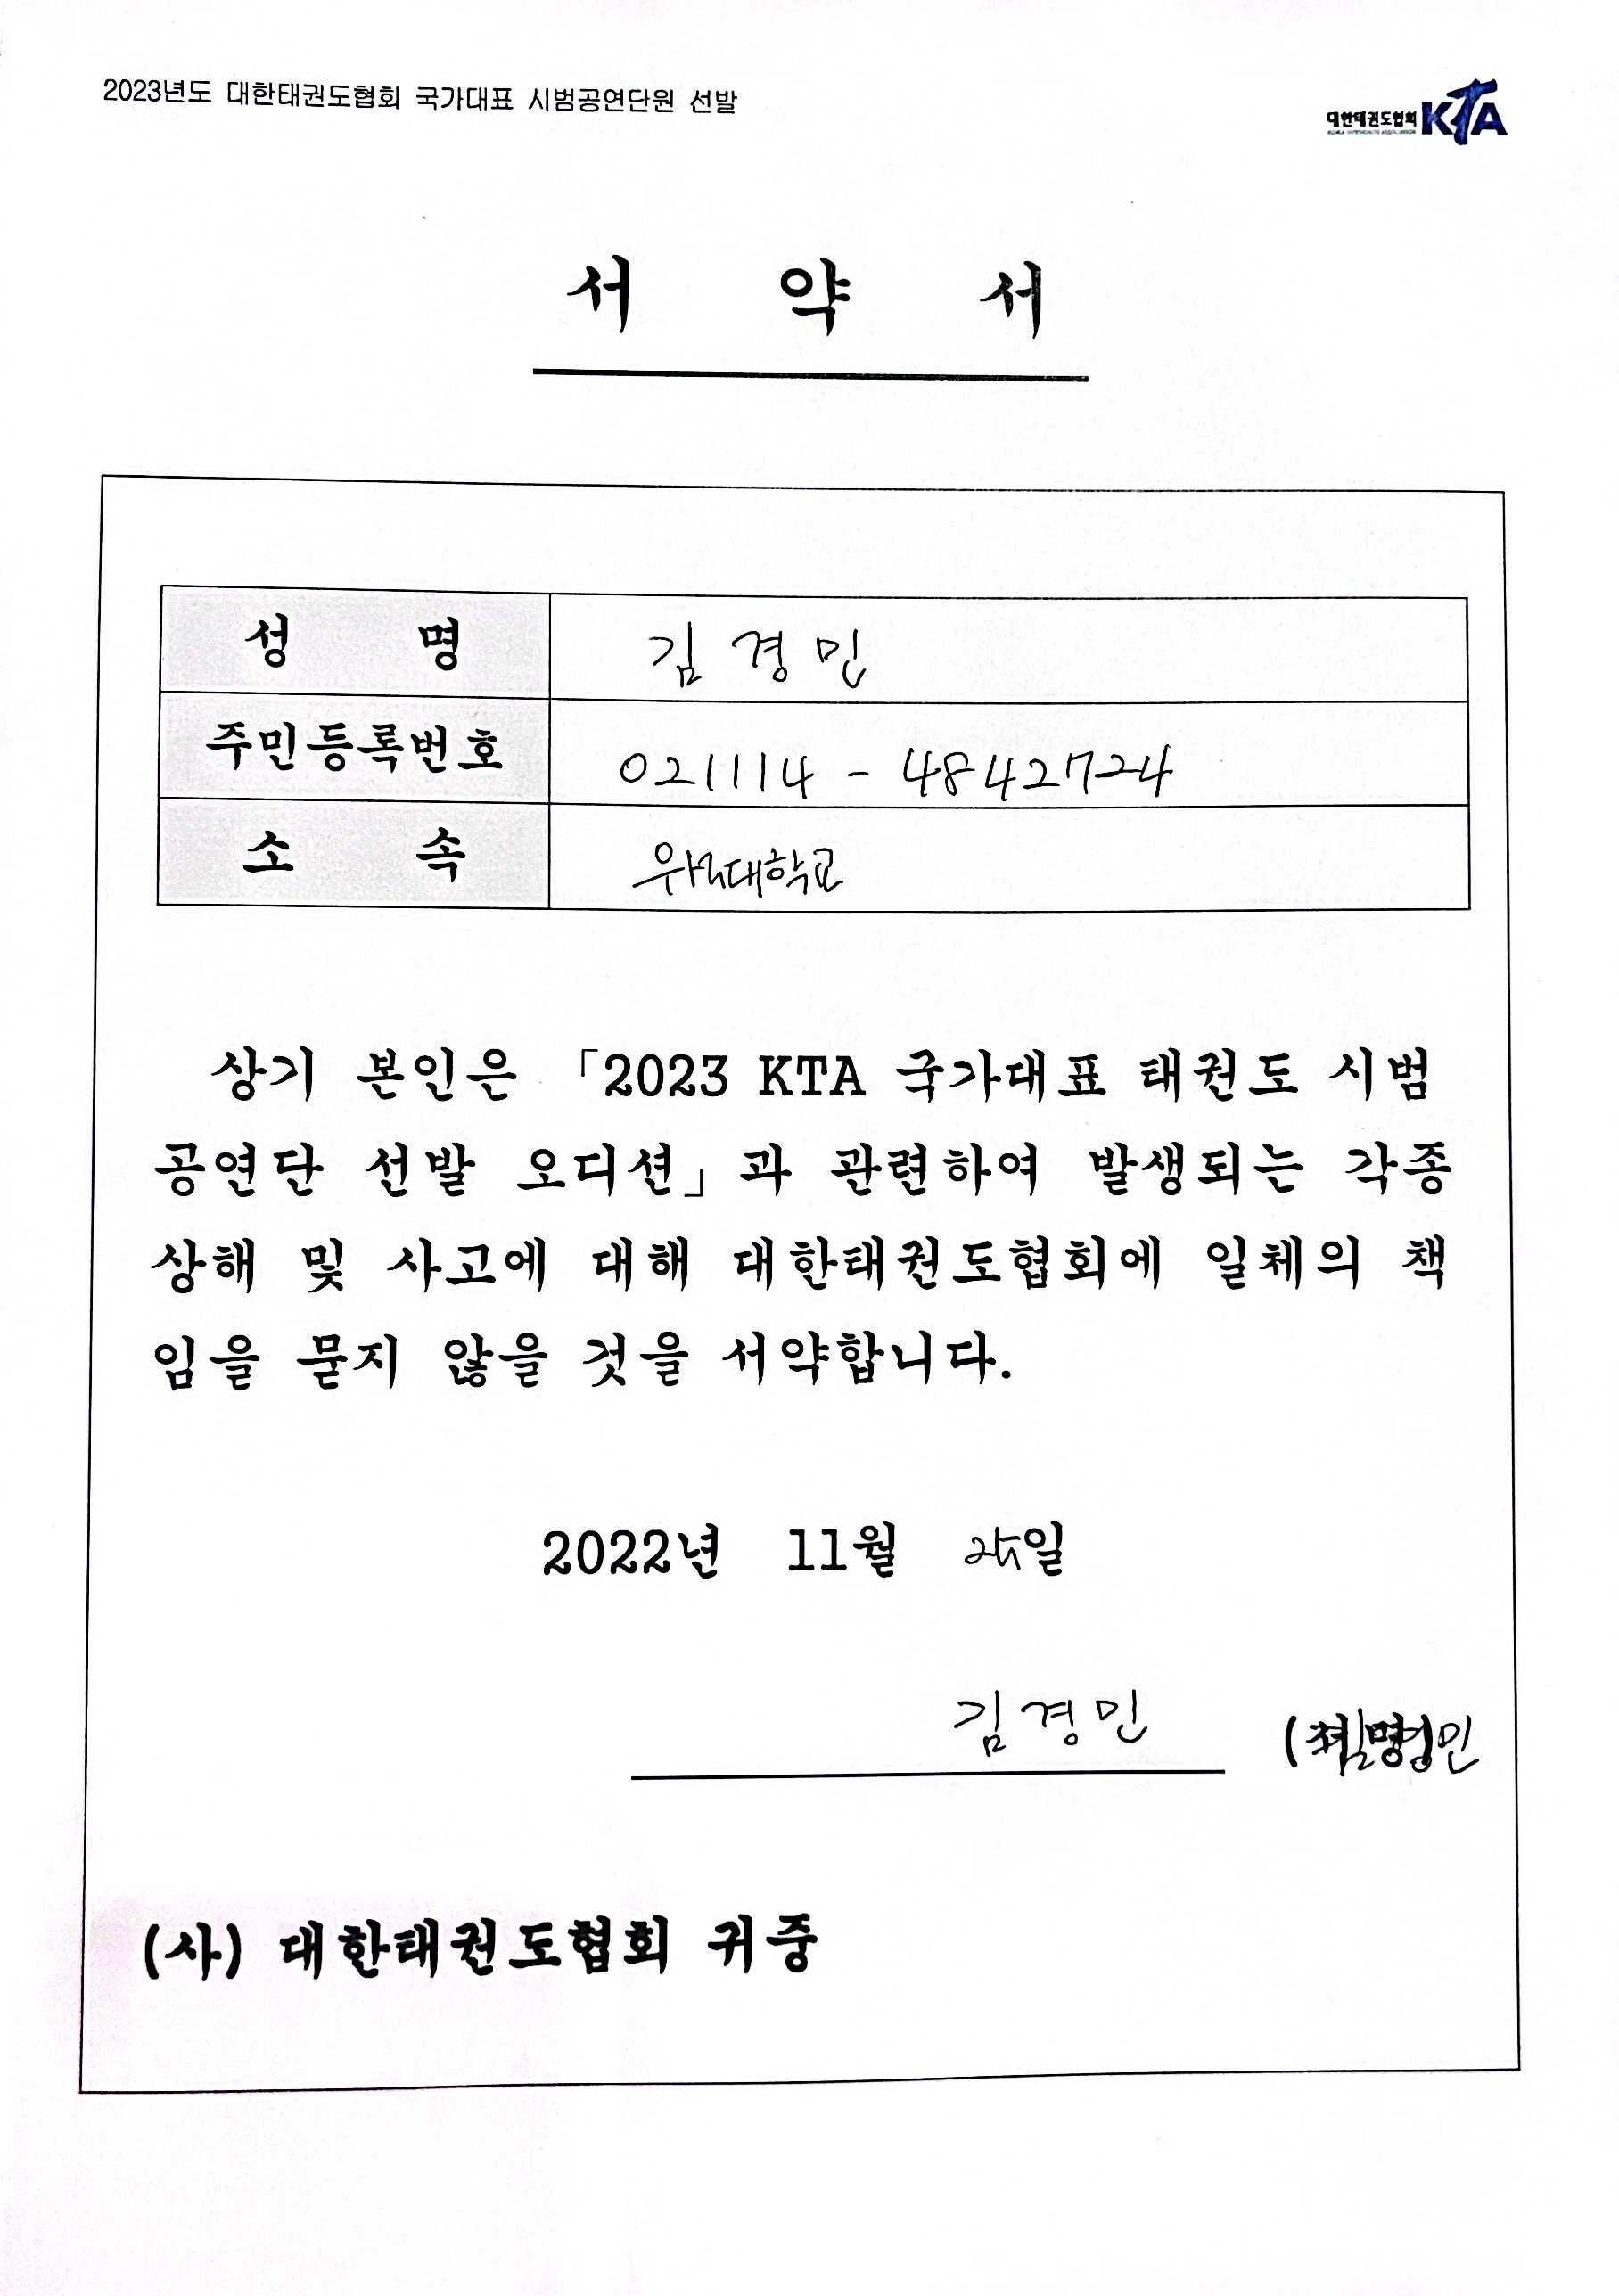 2023년도 대한태권도협회 국가대표 시범공연단원 선발
대한태권도협회 KTA
서 약 서
성 명 김경민
주민등록번호 021114 - 4842724
소 속 우석대학교
상기 본인은 「2023 KTA 국가대표 태권도 시범
공연단 선발 오디션」과 관련하여 발생되는 각종
상해 및 사고에 대해 대한태권도협회에 일체의 책
임을 묻지 않을 것을 서약합니다.
2022년 11월 25일
김경민
(사) 대한태권도협회 귀중